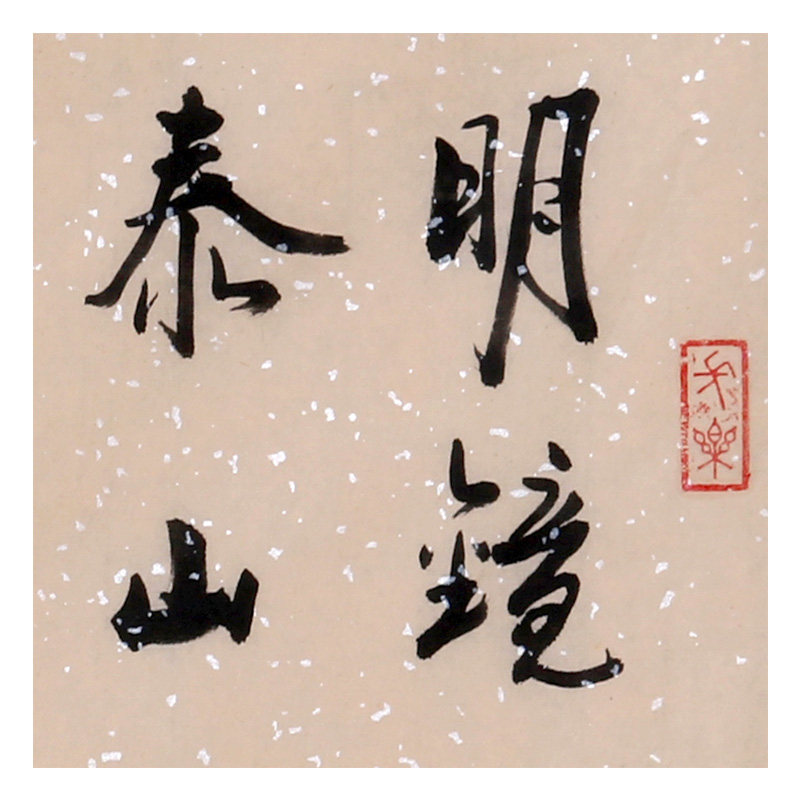 明鏡
泰山